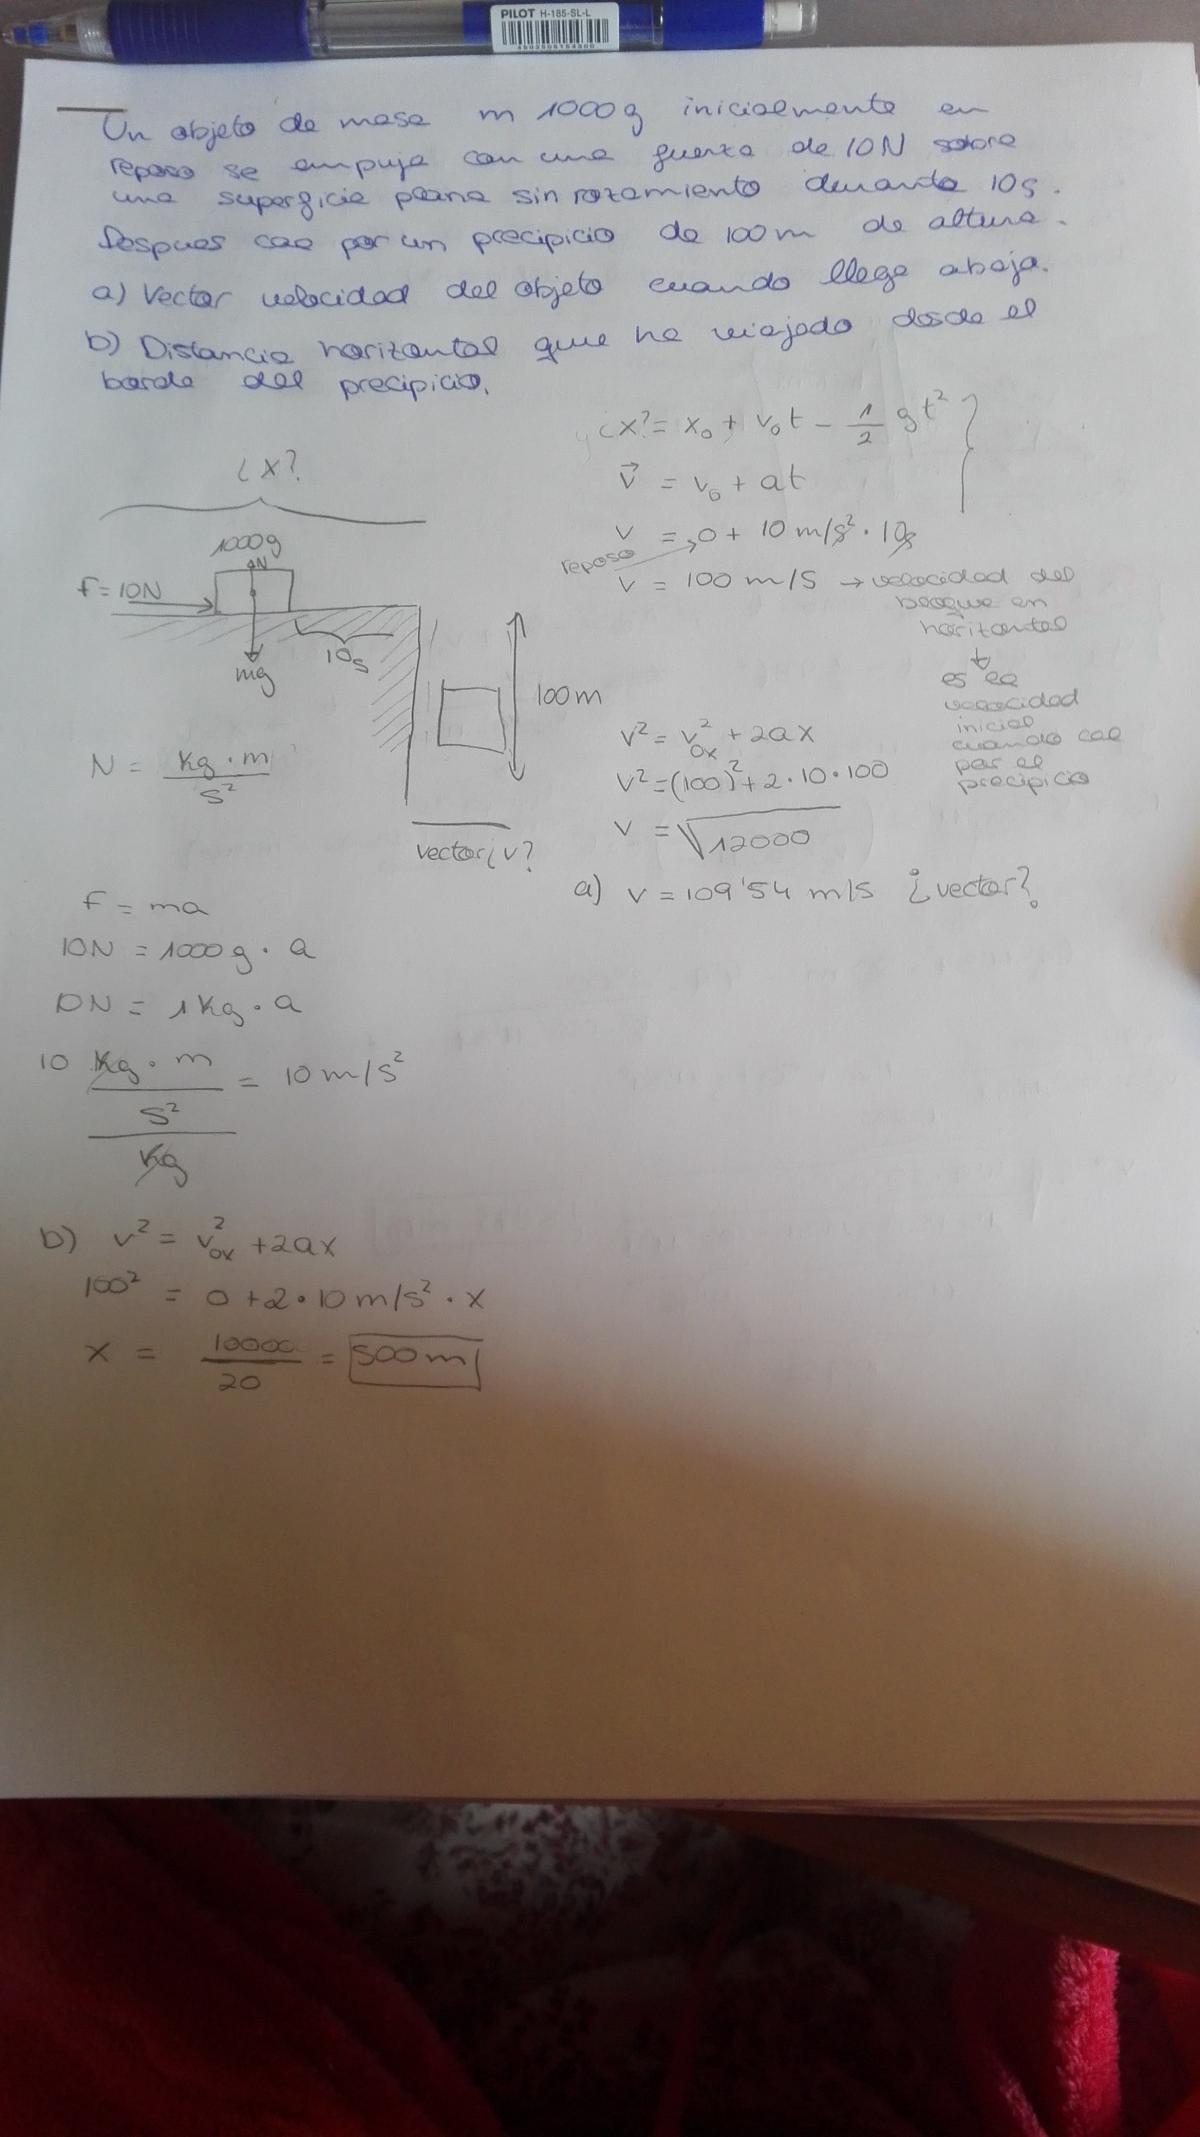 PILOT H-185-SL-L
Un objeto de masa m 1000g inicialmente en
reposo se empuja con una fuerza de 10N sobre
una superficie plana sin rozamiento durante 10s.
Despues cae por un precipicio de 100m de altura.
a) Vector velocidad del objeto cuando llega abajo.
b) Distancia horizontal que ha viajado desde el
borde del precipicio.
¿X?
1000g
N
F=10N
mg
10s
100m
vector ¿v?
N = kg·m / s²
F = ma
10N = 1000g · a
10N = 1kg · a
10 kg·m / s² / kg = 10 m/s²
b) v² = v²ox + 2ax
100² = 0 + 2·10 m/s² · x
x = 10000 / 20 = 500m
¿X? = x₀ + v₀t - 1/2 gt²
v⃗ = v₀ + at
v = 0 + 10 m/s² · 10s
reposo
v = 100 m/s → velocidad del
bloque en
horizontal
↓
es la
velocidad
inicial
cuando cae
por el
precipicio
v² = v²ox + 2ax
v² = (100)² + 2·10·100
v = √12000
a) v = 109'54 m/s ¿vector?